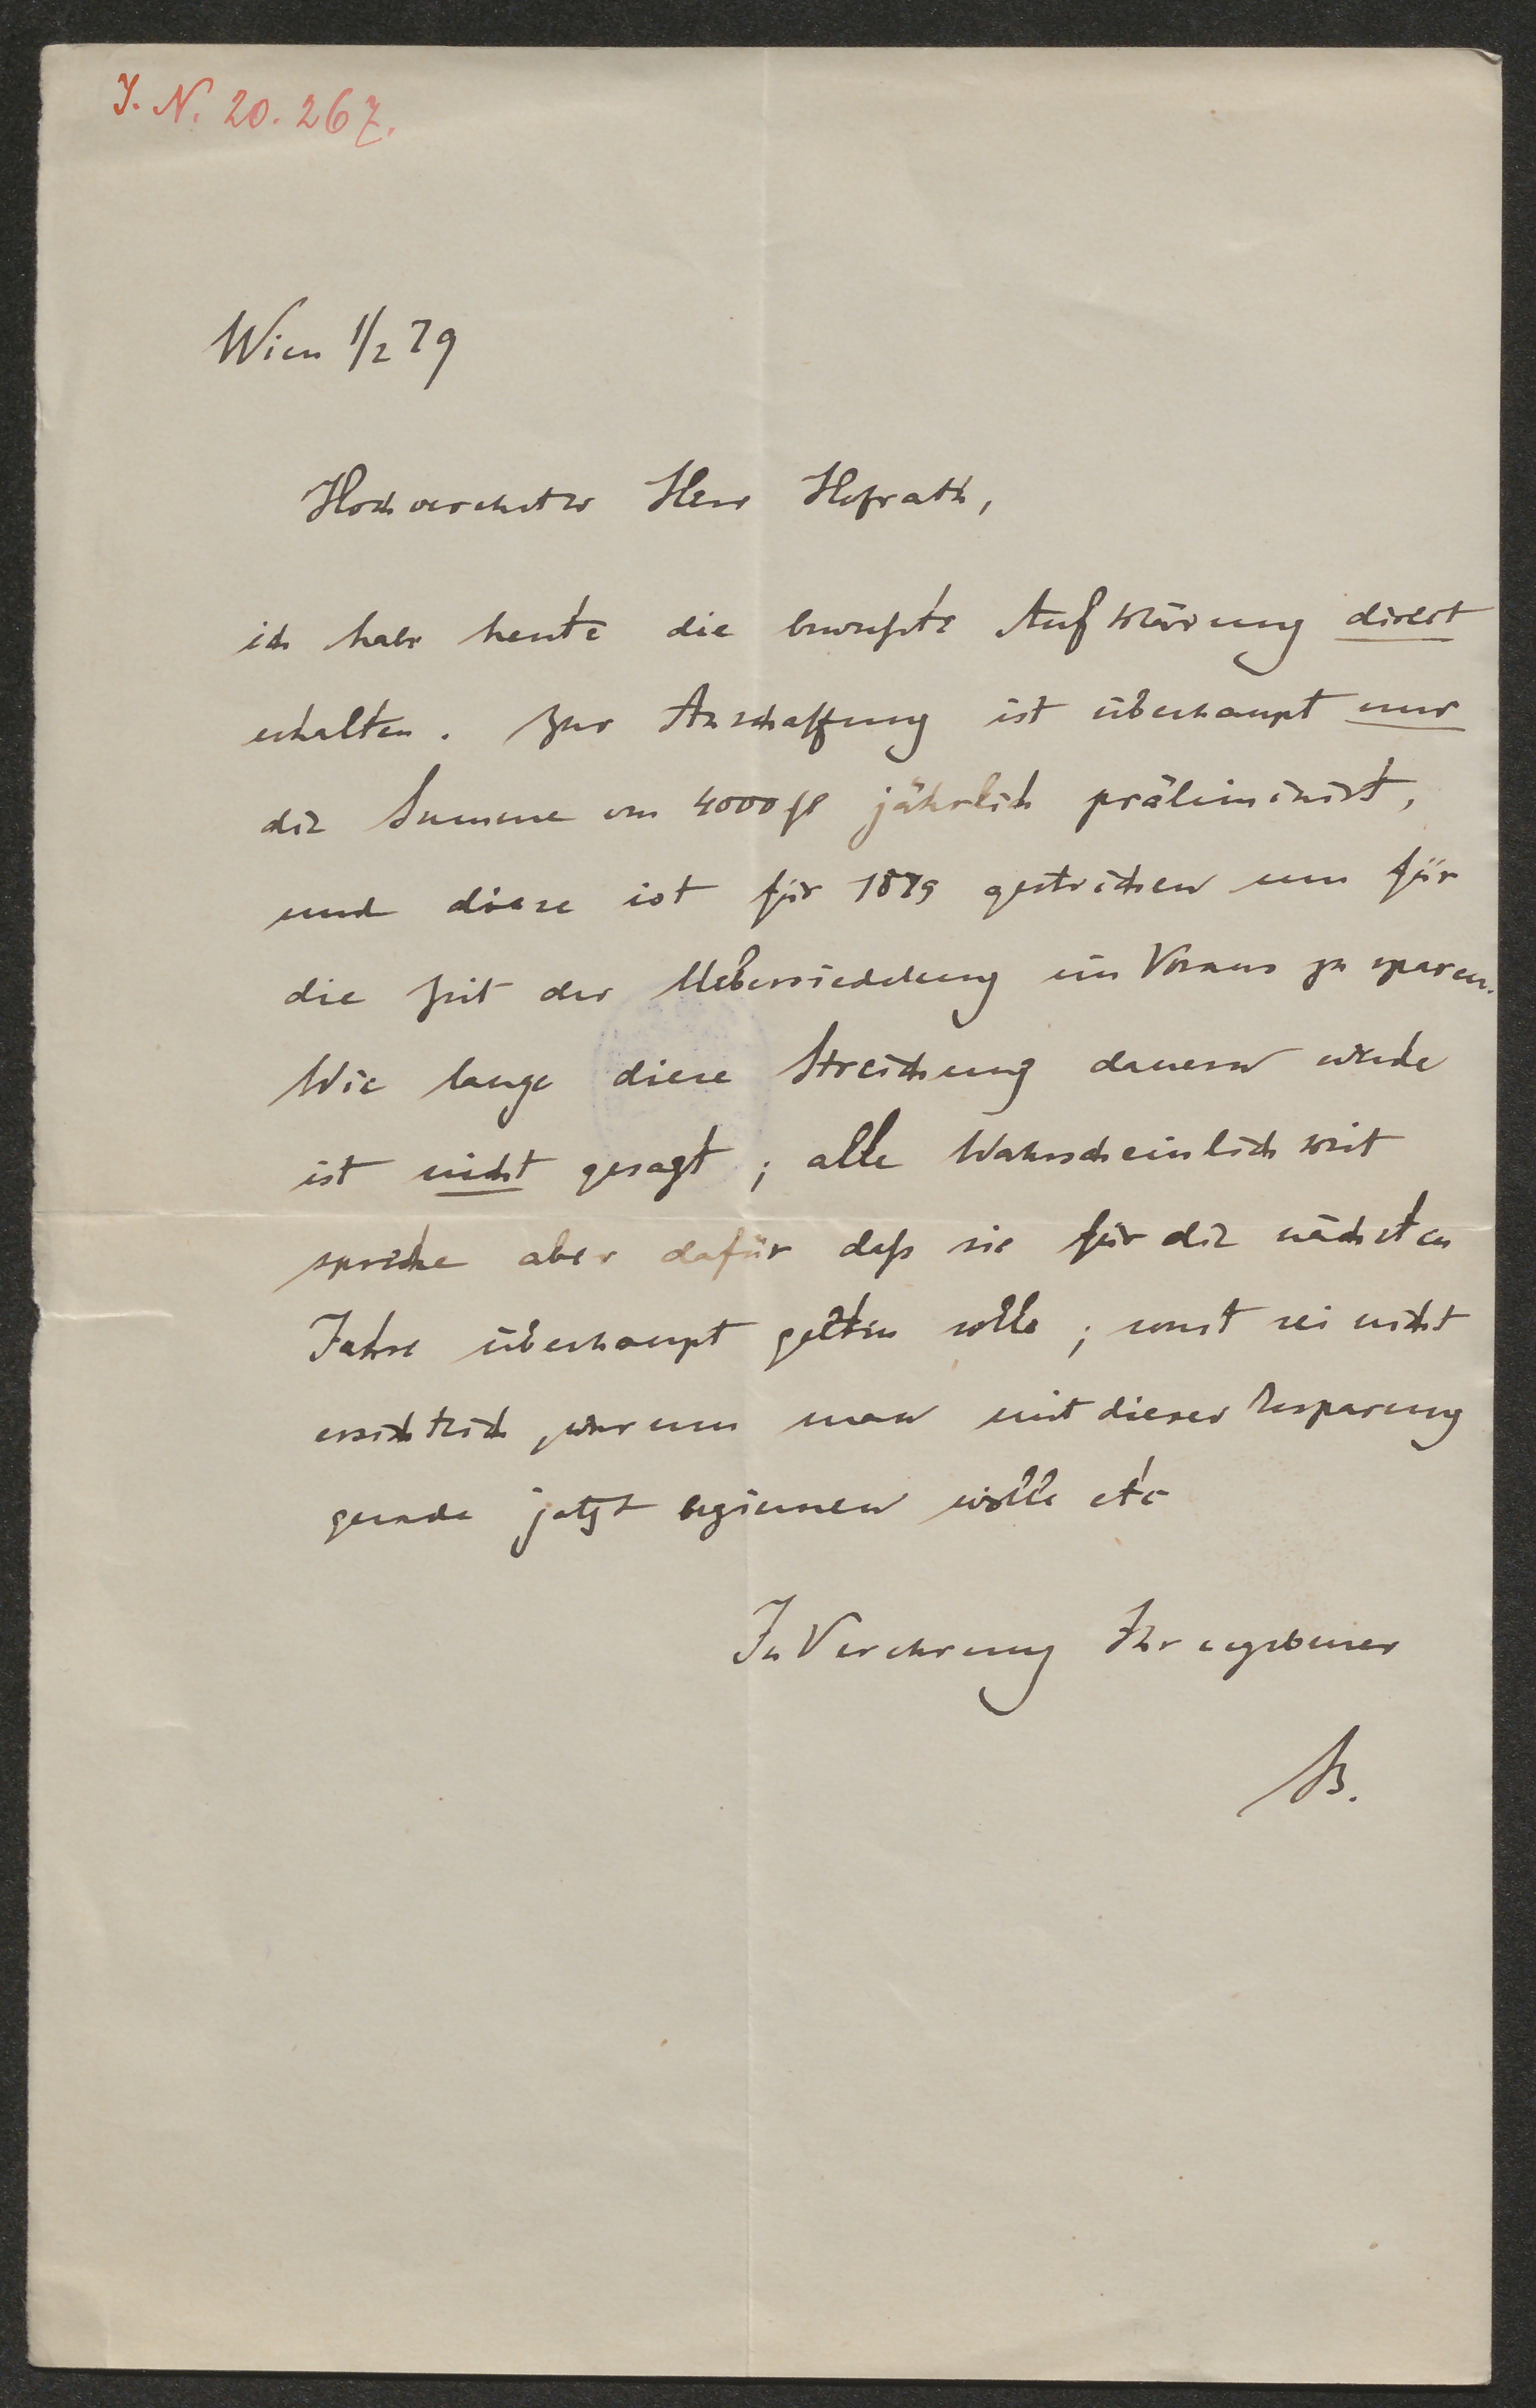 J. N. 20.267.
Wien 1/2 79
Hochverehrter Herr Hofrath,
ich habe heute die bewußte Aufklärung direct
erhalten. Zur Anschaffung ist überhaupt nur
die Summe von 4000 fl jährlich präliminirt,
und diese ist für 1879 gestrichen um für
die Zeit der Uebersiedelung im Voraus zu sparen.
Wie lange diese Streichung dauern werde
ist nicht gesagt; alle Wahrscheinlichkeit
spreche aber dafür daß sie für die nächsten
Jahre überhaupt gelten solle; sonst sei nicht
ersichtlich, warum man mit dieser Ersparung
gerade jetzt beginnen wolle etc
In Verehrung Ihr ergebener
B.